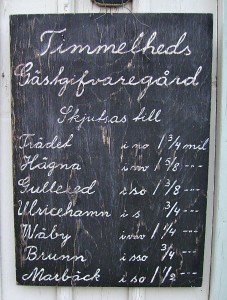 Timmelheds
Gästgifvaregård
Skjutsas till
Trädet i no 1 3/4 mil
Hägna i nno 1 5/8 ---
Gullered i so 1 3/8 ---
Ulricehamn i s 3/4 ---
Wäby i vnv 1 1/4 ---
Brunn i sso 3/4 ---
Marbäck i so 1 1/2 ---